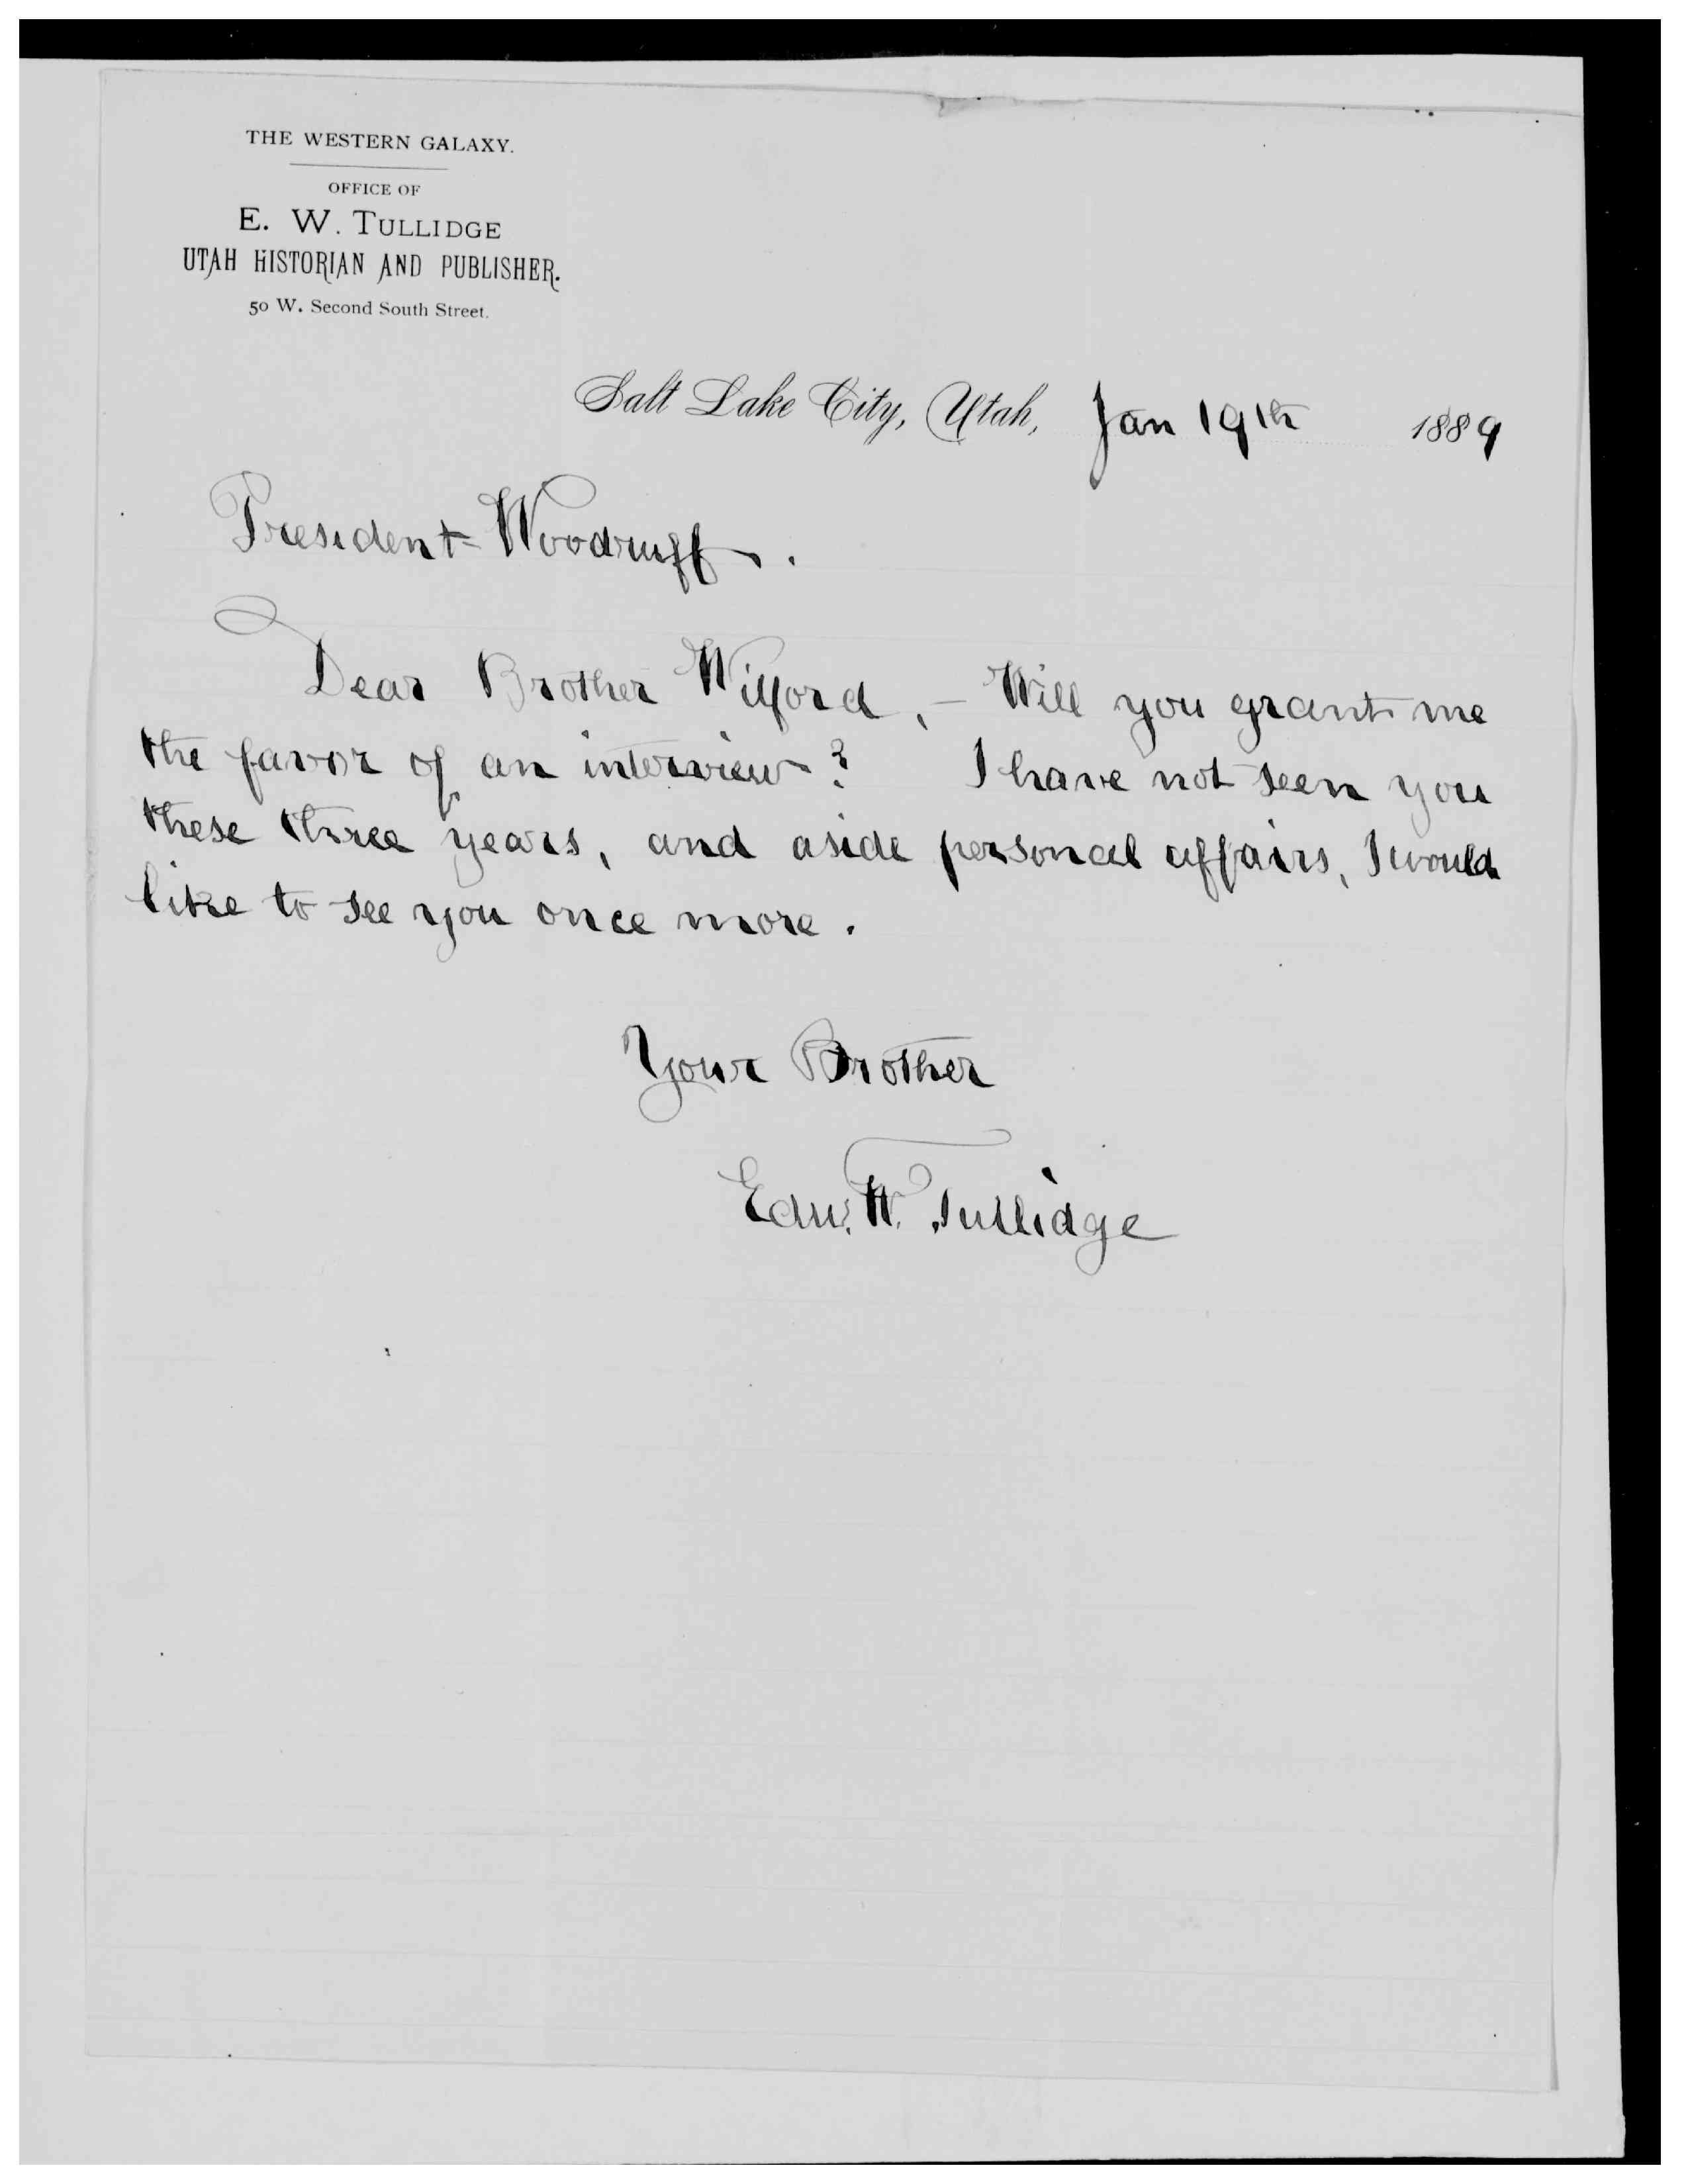 THE WESTERN GALAXY.
OFFICE OF
E. W. TULLIDGE
UTAH HISTORIAN AND PUBLISHER.
50 W. Second South Street.
Salt Lake City, Utah, Jan 19th 1889
President Woodruff.
Dear Brother Wilford, – Will you grant me
the favor of an interview? I have not seen you
these three years, and aside personal affairs, I would
like to see you once more.
Your Brother
Edw. W. Tullidge